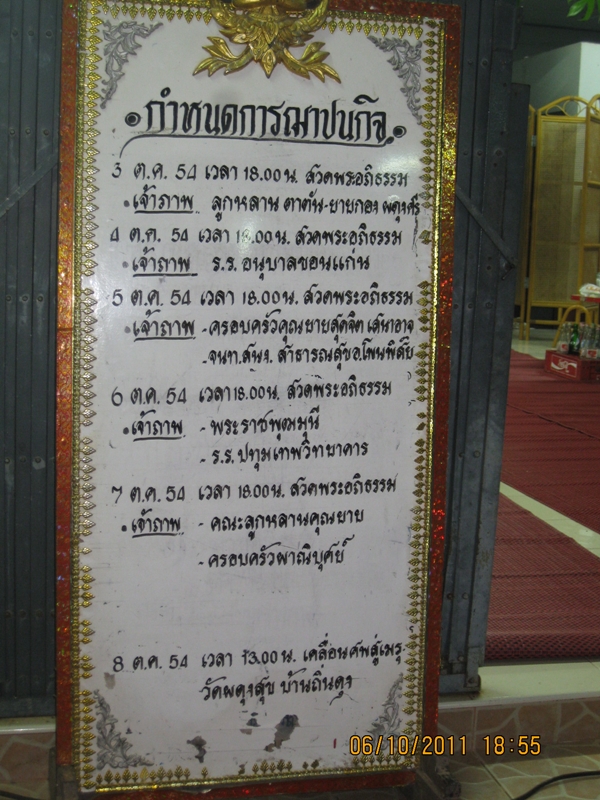 กำหนดการฌาปนกิจ
3 ต.ค. 54 เวลา 18.00 น. สวดพระอภิธรรม
เจ้าภาพ ลูกหลาน ตาตัน-ยายทอง ผดุงศรี
4 ต.ค. 54 เวลา 18.00 น. สวดพระอภิธรรม
เจ้าภาพ ร.ร. อนุบาลขอนแก่น
5 ต.ค. 54 เวลา 18.00 น. สวดพระอภิธรรม
เจ้าภาพ - ครอบครัวคุณยายสุดจิต เสนาอาจ
- จนท. สนง. สาธารณสุขอ.โพนพิสัย
6 ต.ค. 54 เวลา 18.00 น. สวดพระอภิธรรม
เจ้าภาพ - พระราชพุฒมุนี
- ร.ร. ปทุมเทพวิทยาคาร
7 ต.ค. 54 เวลา 18.00 น. สวดพระอภิธรรม
เจ้าภาพ - คณะลูกหลานคุณยาย
- ครอบครัวผาณิบุศย์
8 ต.ค. 54 เวลา 13.00 น. เคลื่อนศพสู่เมรุ
วัดผดุงสุข บ้านถิ่นดุง
06/10/2011 18:55